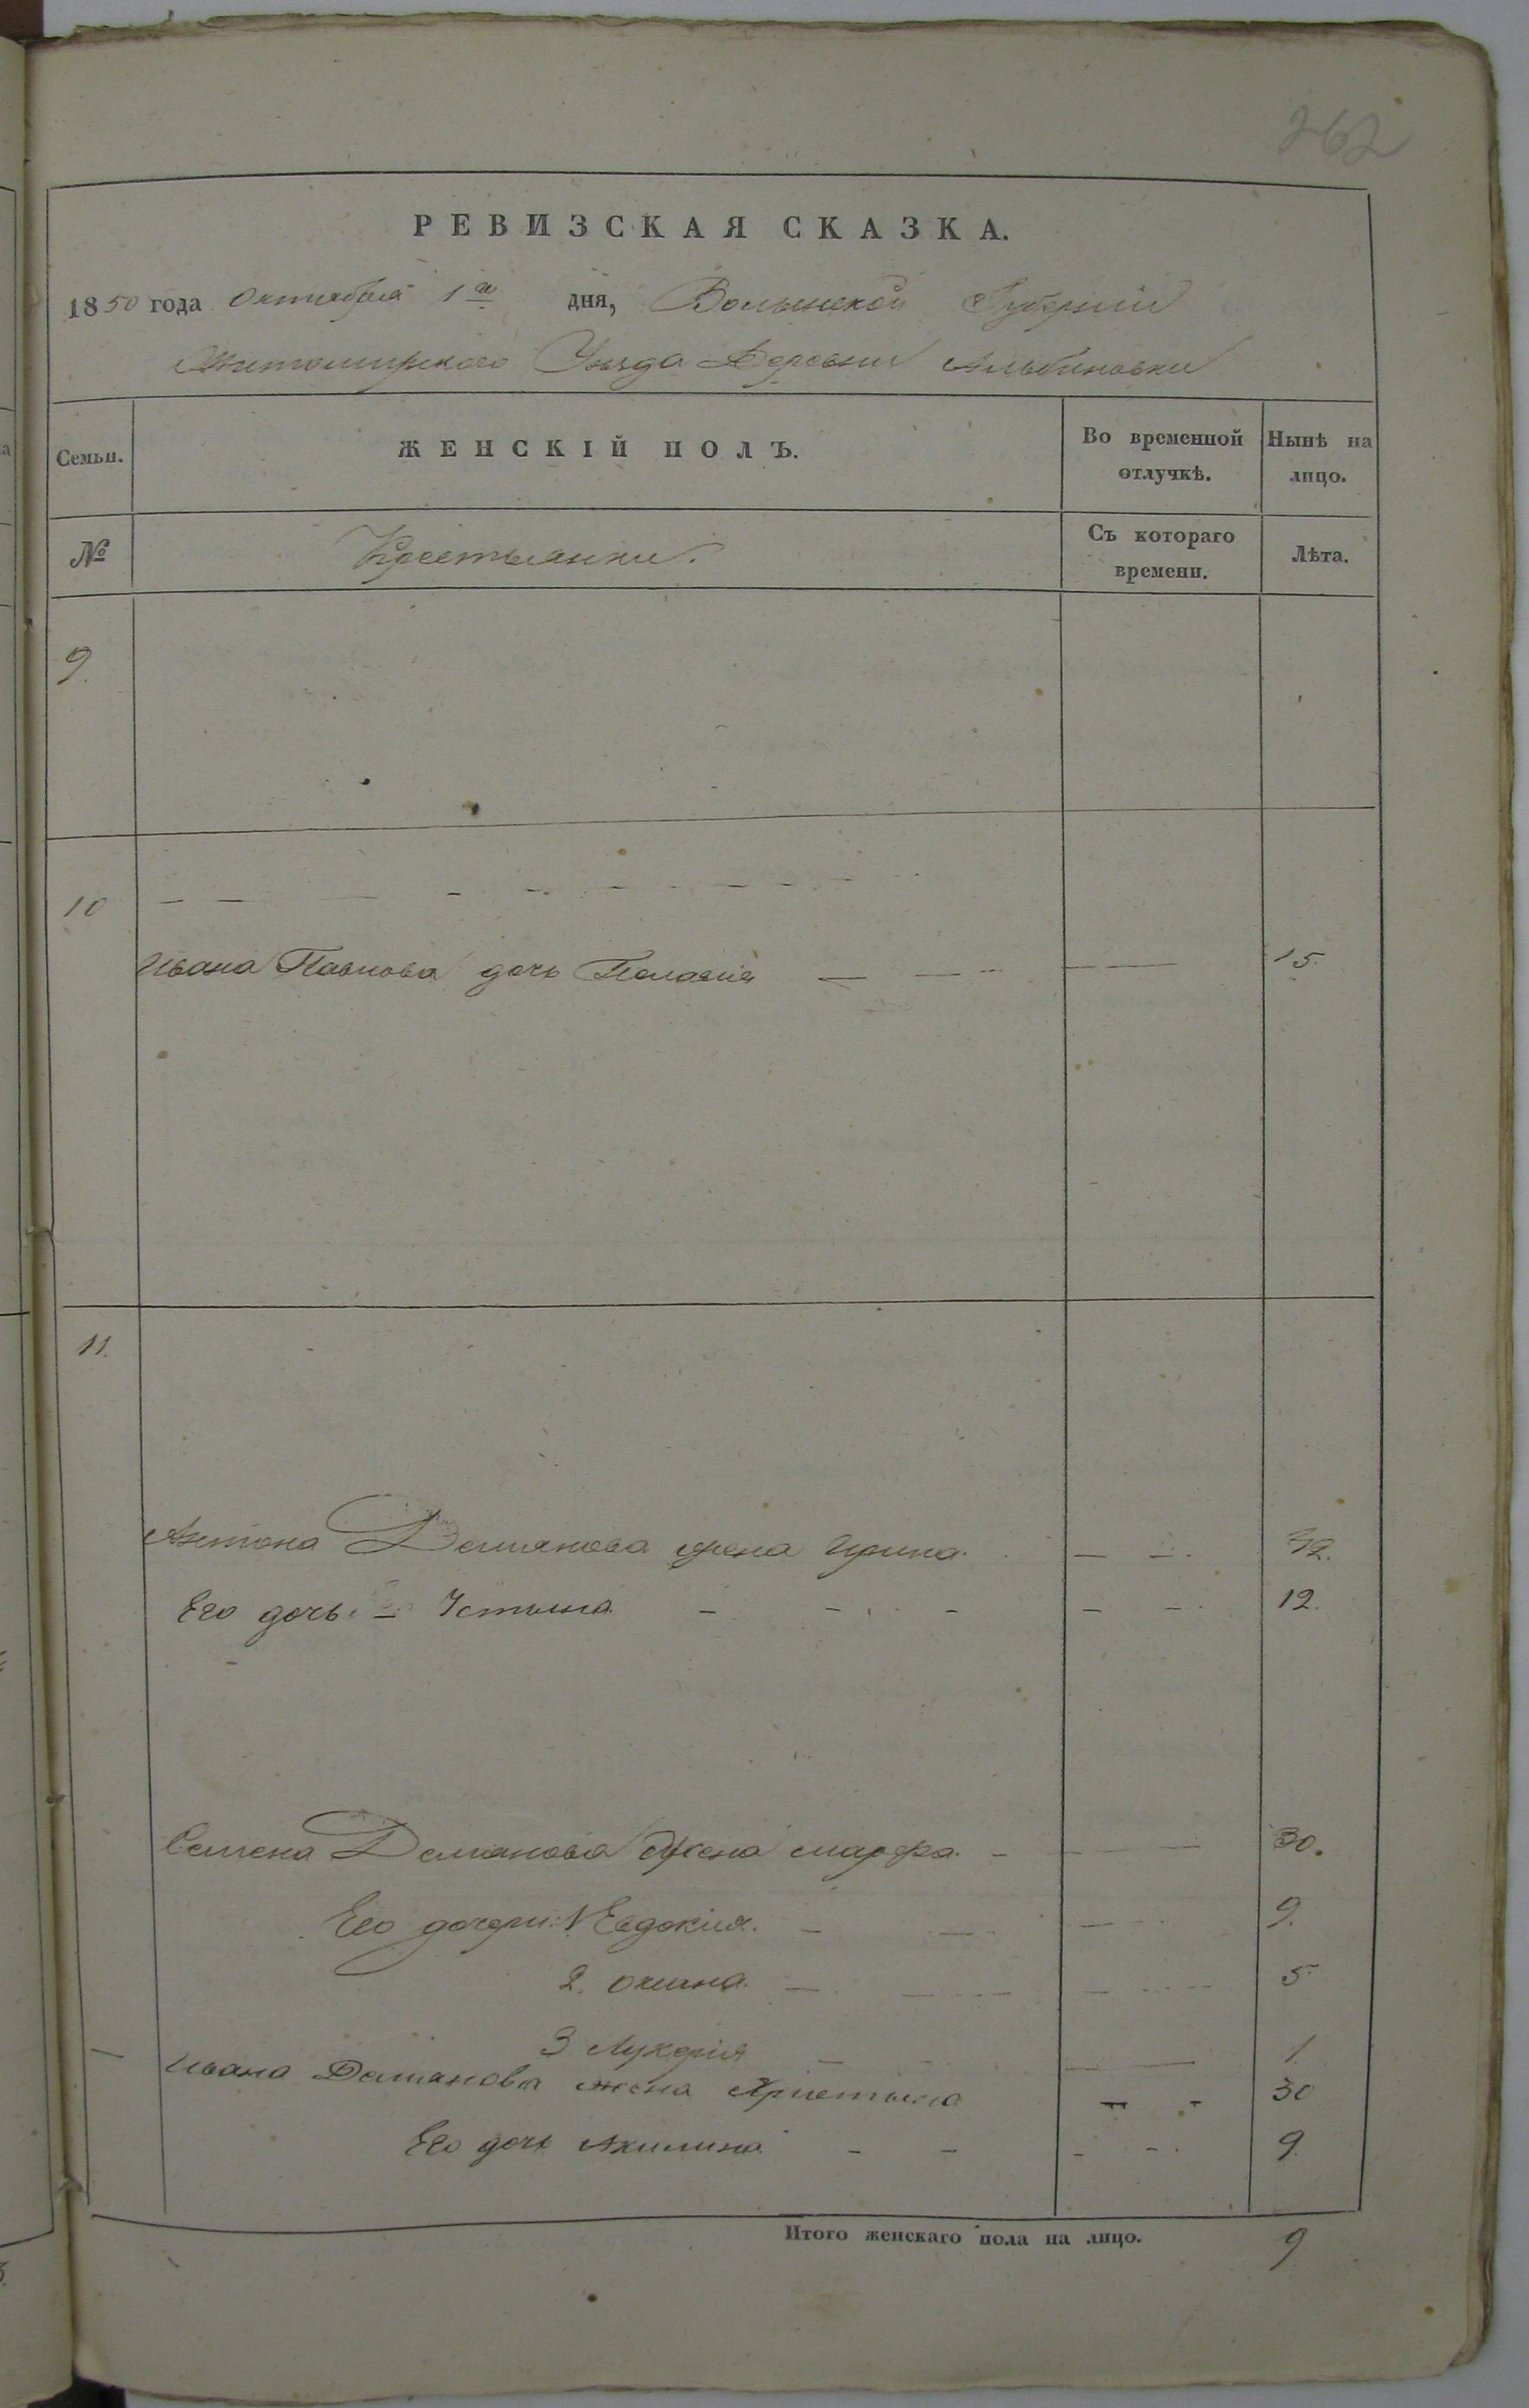 262
РЕВИЗСКАЯ СКАЗКА.
1850 года Октября 1го дня, Волынской Губернии
Житомирского Уезда Деревни Альбиновки
Семьи. ЖЕНСКІЙ ПОЛЪ. Во временной отлучкѣ. Нынѣ на лицо.
№ Крестьянки. Съ котораго времени. Лѣта.
9.
10 — — — - - - - - - -
Ивана Павлова дочь Пелагия — — — 15.
11.
Антона Демянова жена Ирина. — — 42.
Его дочь — Устына - - - - - 12.
Семена Демянова Жена марфа. - — — 30.
Его дочери: 1 Евдокия. — — — 9.
2. Оксина. — — — 5
3 Лукерия — — — 1.
Ивана Демянова жена Християна — - 30
Его дочь Акилина - - - - 9.
Итого женскаго пола на лицо. 9